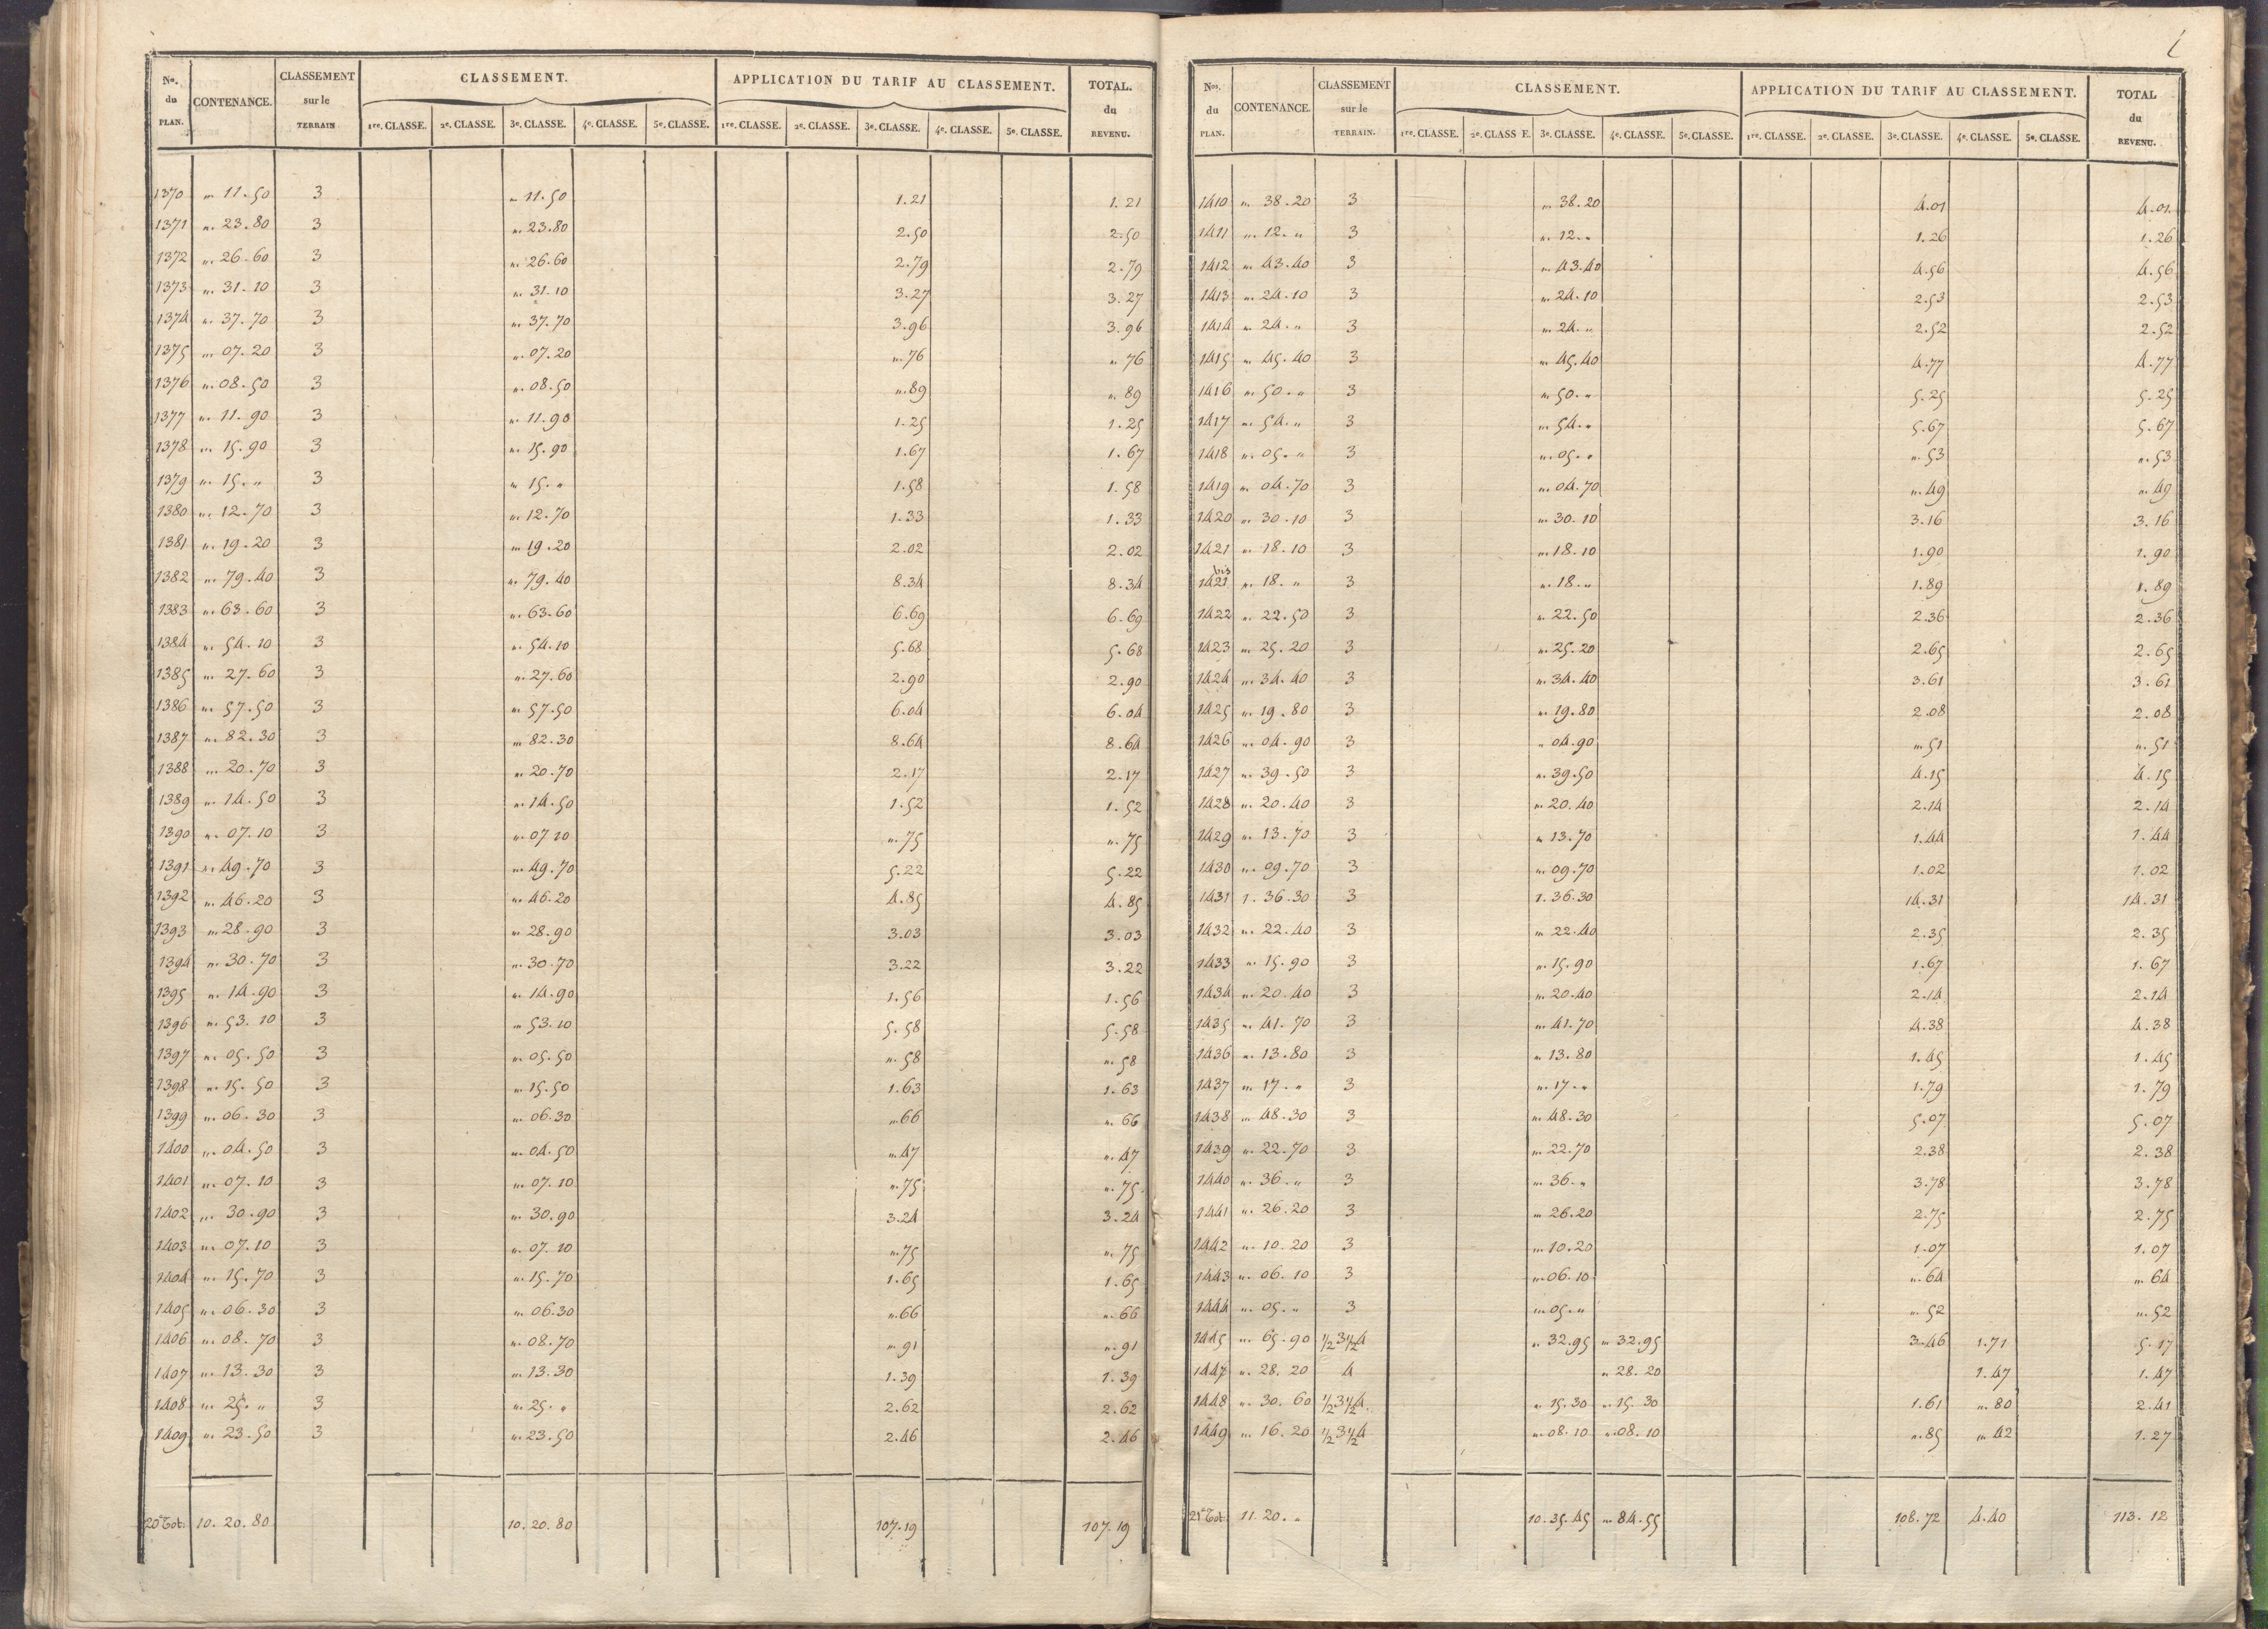 No. du PLAN. CONTENANCE. CLASSEMENT sur le TERRAIN CLASSEMENT. APPLICATION DU TARIF AU CLASSEMENT. TOTAL. du REVENU.
1re. CLASSE. 2e. CLASSE. 3e. CLASSE. 4e. CLASSE. 5e. CLASSE. 1re. CLASSE. 2e. CLASSE. 3e. CLASSE. 4e. CLASSE. 5e. CLASSE.
1370 „. 11.50 3 „ 11.50 1.21 1.21
1371 „. 23.80 3 „. 23.80 2.50 2.50
1372 „. 26.60 3 „. 26.60 2.79 2.79
1373 „. 31.10 3 „. 31.10 3.27 3.27
1374 „. 37.70 3 „. 37.70 3.96 3.96
1375 „. 07.20 3 „. 07.20 „. 76 „. 76
1376 „. 08.50 3 „. 08.50 „. 89 „. 89
1377 „. 11.90 3 „. 11.90 1.25 1.25
1378 „. 15.90 3 „. 15.90 1.67 1.67
1379 „. 15. „ 3 „ 15. „ 1.58 1.58
1380 „. 12.70 3 „. 12.70 1.33 1.33
1381 „. 19.20 3 „. 19.20 2.02 2.02
1382 „. 79.40 3 „. 79.40 8.34 8.34
1383 „. 63.60 3 „. 63.60 6.69 6.69
1384 „. 54.10 3 „. 54.10 5.68 5.68
1385 „. 27.60 3 „. 27.60 2.90 2.90
1386 „. 57.50 3 „. 57.50 6.04 6.04
1387 „. 82.30 3 „. 82.30 8.64 8.64
1388 „. 20.70 3 „. 20.70 2.17 2.17
1389 „. 14.50 3 „. 14.50 1.52 1.52
1390 „. 07.10 3 „. 07 10 „. 75 „. 75
1391 „. 49.70 3 „. 49.70 5.22 5.22
1392 „. 46.20 3 „. 46.20 4.85 4.85
1393 „. 28.90 3 „. 28.90 3.03 3.03
1394 „. 30.70 3 „. 30.70 3.22 3.22
1395 „. 14.90 3 „. 14.90 1.56 1.56
1396 „. 53.10 3 „. 53.10 5.58 5.58
1397 „. 05.50 3 „. 05.50 „. 58 „. 58
1398 „. 15.50 3 „. 15.50 1.63 1.63
1399 „. 06.30 3 „. 06.30 „. 66 „. 66
1400 „. 04.50 3 „. 04.50 „. 47 „. 47
1401 „. 07.10 3 „. 07.10 „. 75 „. 75
1402 „. 30.90 3 „. 30.90 3.24 3.24
1403 „. 07.10 3 „. 07.10 „. 75 „. 75
1404 „. 15.70 3 „. 15.70 1.65 1.65
1405 „. 06.30 3 „. 06.30 „. 66 „. 66
1406 „. 08.70 3 „. 08.70 „. 91 „. 91
1407 „. 13.30 3 „. 13.30 1.39 1.39
1408 „. 25. „ 3 „. 25. „ 2.62 2.62
1409 „. 23.50 3 „. 23.50 2.46 2.46
20e Tot. 10.20.80 10.20.80 107.19 107.19
Nos. du PLAN. CONTENANCE. CLASSEMENT sur le TERRAIN. CLASSEMENT. APPLICATION DU TARIF AU CLASSEMENT. TOTAL du REVENU.
1re. CLASSE. 2e. CLASS E. 3e. CLASSE. 4e. CLASSE. 5e. CLASSE. 1re. CLASSE. 2e. CLASSE. 3e. CLASSE. 4e. CLASSE. 5e. CLASSE.
1410 „. 38.20 3 „. 38.20 4.01 4.01
1411 „. 12. „ 3 „. 12. „ 1.26 1.26
1412 „. 43.40 3 „. 43.40 4.56 4.56
1413 „. 24.10 3 „. 24.10 2.53 2.53
1414 „. 24. „ 3 „. 24. „ 2.52 2.52
1415 „. 45.40 3 „. 45.40 4.77 4.77
1416 „. 50. „ 3 „. 50. „ 5.25 5.25
1417 „. 54. „ 3 „. 54. „ 5.67 5.67
1418 „. 05. „ 3 „. 05. „ „. 53 „. 53
1419 „. 04.70 3 „. 04.70 „. 49 „. 49
1420 „. 30.10 3 „. 30.10 3.16 3.16
1421 „. 18.10 3 „. 18.10 1.90 1.90
1421 bis „. 18. „ 3 „. 18. „ 1.89 1.89
1422 „. 22.50 3 „. 22.50 2.36 2.36
1423 „. 25.20 3 „. 25.20 2.65 2.65
1424 „. 34.40 3 „. 34.40 3.61 3.61
1425 „. 19.80 3 „. 19.80 2.08 2.08
1426 „. 04.90 3 „ 04.90 „. 51 „. 51
1427 „. 39.50 3 „. 39.50 4.15 4.15
1428 „. 20.40 3 „. 20.40 2.14 2.14
1429 „. 13.70 3 „ 13.70 1.44 1.44
1430 „. 09.70 3 „. 09.70 1.02 1.02
1431 1.36.30 3 1.36.30 14.31 14.31
1432 „. 22.40 3 „ 22.40 2.35 2.35
1433 „. 15.90 3 „. 15.90 1.67 1.67
1434 „. 20.40 3 „. 20.40 2.14 2.14
1435 „. 41.70 3 „. 41.70 4.38 4.38
1436 „. 13.80 3 „. 13.80 1.45 1.45
1437 „. 17. „ 3 „. 17. „ 1.79 1.79
1438 „. 48.30 3 „. 48.30 5.07 5.07
1439 „. 22.70 3 „. 22.70 2.38 2.38
1440 „. 36. „ 3 „. 36. „ 3.78 3.78
1441 „. 26.20 3 „. 26.20 2.75 2.75
1442 „. 10.20 3 „. 10.20 1.07 1.07
1443 „. 06.10 3 „. 06.10 „. 64 „. 64
1444 „. 05. „ 3 „. 05. „ „. 52 „. 52
1445 „. 65.90 1/2 3 1/2 4 „. 32.95 „. 32.95 3.46 1.71 5.17
1447 „. 28.20 4 „ 28.20 1.47 1.47
1448 „. 30.60 1/2 3 1/2 4. „. 15.30 „. 15.30 1.61 „. 80 2.41
1449 „. 16.20 1/2 3 1/2 4 „. 08.10 „. 08.10 „. 85 „. 42 1.27
21e Tot. 11.20. „ 10.35.45 „. 84.55 108.72 4.40 113.12